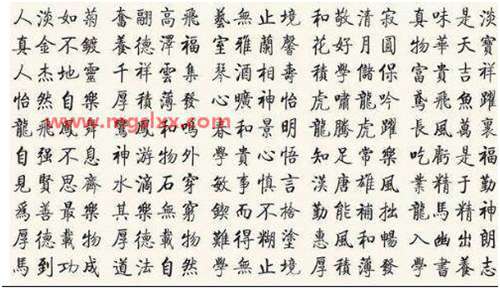 人淡如菊 奮翩高飛 藝無止境 和敬清寂 真味是淡
真金不鍍 養德澤福 室雅蘭馨 花好月圓 物華天寶
人杰地靈 千祥雲集 琴酒相壽 學儲保 富貴吉祥
怡然自樂 厚積薄發 心曠神怡 虎嘯龍吟 鳶飛魚躍
龍飛鳳舞 鸞鳳和鳴 春和景明 龍騰虎躍 長風萬裏
www.mgalxx.com
自强不息 神游物外 學貴心悟 知足常樂 吃虧是福
見賢思齊 水滴石穿 敏事慎言 漢唐雄風 業精于勤
爲善最樂 其樂無窮 鍥而不捨 勤能補拙 龍馬精神
厚德載物 難得糊塗 惠風和暢 入幽出朗
馬到功成 道法自然 學無止境 厚積薄發 學書養志